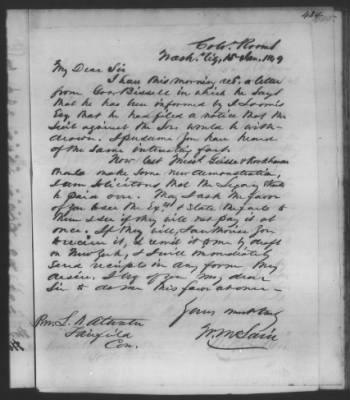 Colo. Rooms
Wash. City, 15 Jan. 1849
My Dear Sir
I have this morning recd. a letter
from Gov. Bissell in which he says
that he has been informed by
Esq that he had filed a notice that the
suit against the would be with-
drawn. I presume you have heard
of the same interesting fact.
Now lest Missrs &
should make some new demonstration,
I am solicitous that the Legacy
be paid over. May I ask the favor
of you to on the & State the facts to
them & see if they will not pay it at
once. If they will, I authorize you
to receive it, & remit it to me by draft
on New York, & I will immediately
send receipts in any form they
desire. I beg of you my dear
Sir to do me this favor at once—
Yours most truly
W. McLain
Rev. L. H. Atwater
Fairfield
Con.